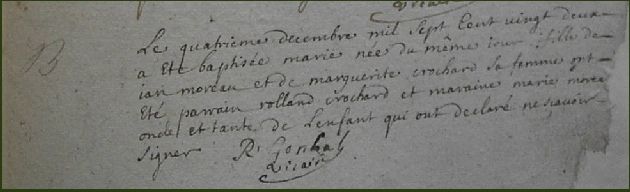 Vicaire
B
Le quatrieme decembre mil Sept Cent vingt deux
a Eté baptisée marie née du même iour fille de
ian moreau et de marguerite crochard sa femme ont
Eté parrain rolland crochard et maraine marie morea
oncle et tante de Lenfant qui ont declaré ne sçavoir
signer R
Vicaire